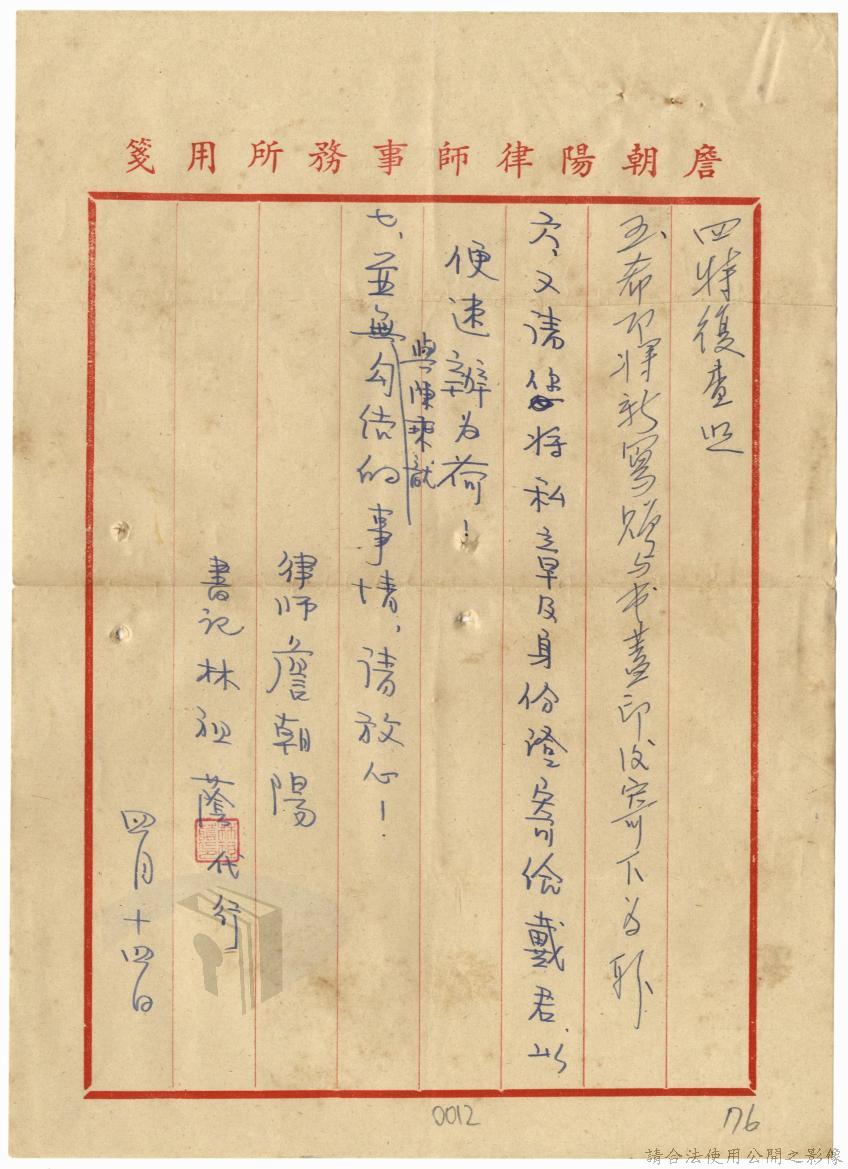 詹朝陽律師事務所用箋
四特復查照
五、希即將新寫贈与书蓋印後寄下为
六、又請您將私章及身份證寄给戴君、以
便速辦为荷！
與陳
七、並無勾结的事情，請放心！
律师詹朝陽
書记林祖蔭代行
四月十四日
0012
176
請合法使用公開之影像